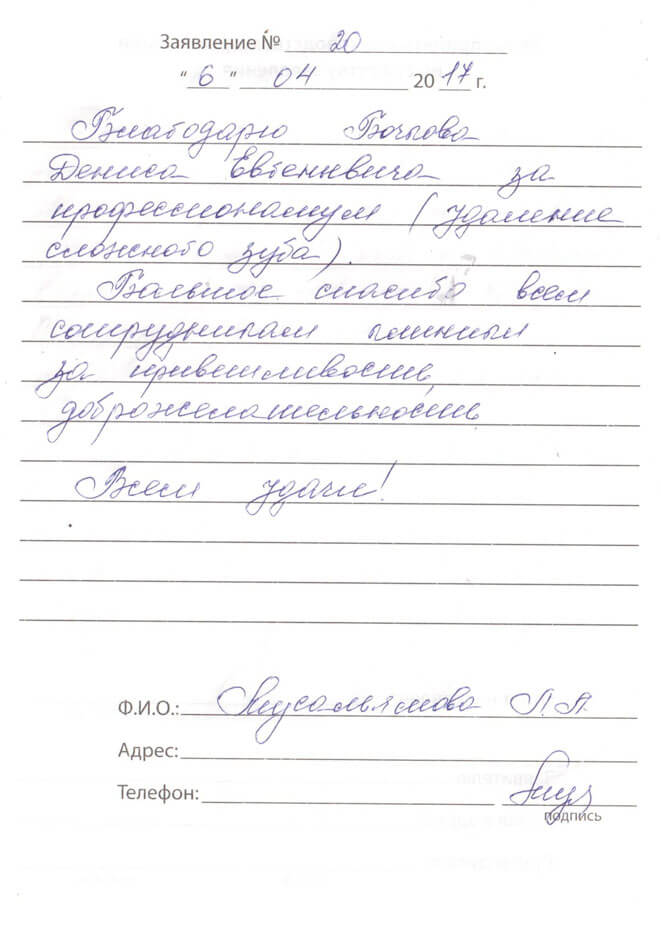 Заявление № 20
"6" 04 2017 г.
Благодарю Бочкова
Дениса Евгениевича за
профессионализм (удаление
сложного зуба).
Большое спасибо всем
сотрудникам клиники
за приветливость,
доброжелательность
Всем удачи!
Ф.И.О.: Мусальямова Л.А.
Адрес:
Телефон:
подпись